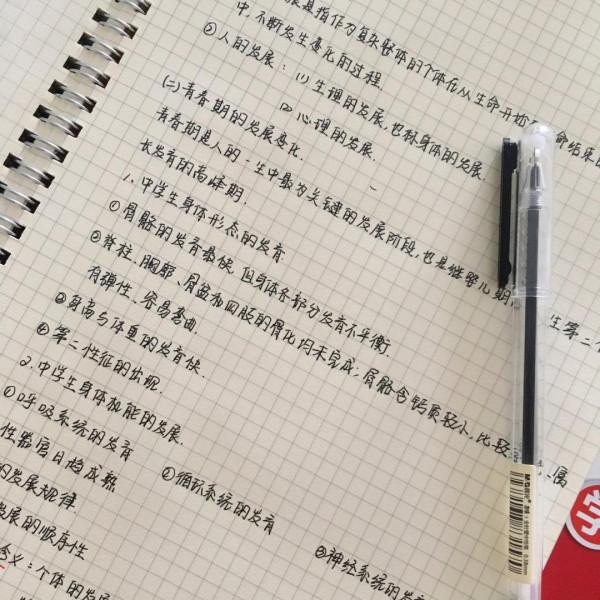 展是指作为复杂整体的个体在从生命开始 命结束的
中,不断发生变化的过程.
②人的发展:(1)生理的发展,也称身体的发展.
(2)心理的发展.
(二)青春期的发展变化.
青春期是人的一生中最为关键的发展阶段,也是继婴儿期 生第二个
长发育的高峰期.
1.中学生身体形态的发育
①骨骼的发育最快,但身体各部分发育不平衡.
②脊柱、胸廓、骨盆和四肢的骨化均未完成;骨骼含钙质较小,比较 属
有弹性、容易弯曲.
③身高与体重的发育快.
④第二性征的出现.
2.中学生身体机能的发展.
①呼吸系统的发育
②循环系统的发育
③神经系统的发育
性器官日趋成熟
的发展规律
发展的顺序性
含义:个体的发展
M&G
0.35mm
学